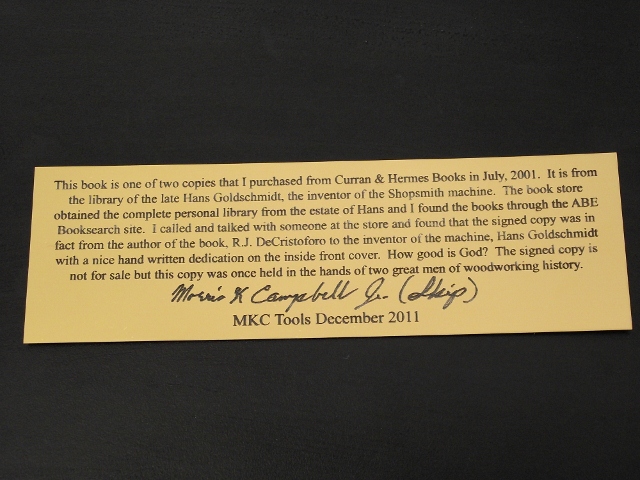 This book is one of two copies that I purchased from Curran & Hermes Books in July, 2001. It is from
the library of the late Hans Goldschmidt, the inventor of the Shopsmith machine. The book store
obtained the complete personal library from the estate of Hans and I found the books through the ABE
Booksearch site. I called and talked with someone at the store and found that the signed copy was in
fact from the author of the book, R.J. DeCristoforo to the inventor of the machine, Hans Goldschmidt
with a nice hand written dedication on the inside front cover. How good is God? The signed copy is
not for sale but this copy was once held in the hands of two great men of woodworking history.
Morris K Campbell Jr. (Skip)
MKC Tools December 2011